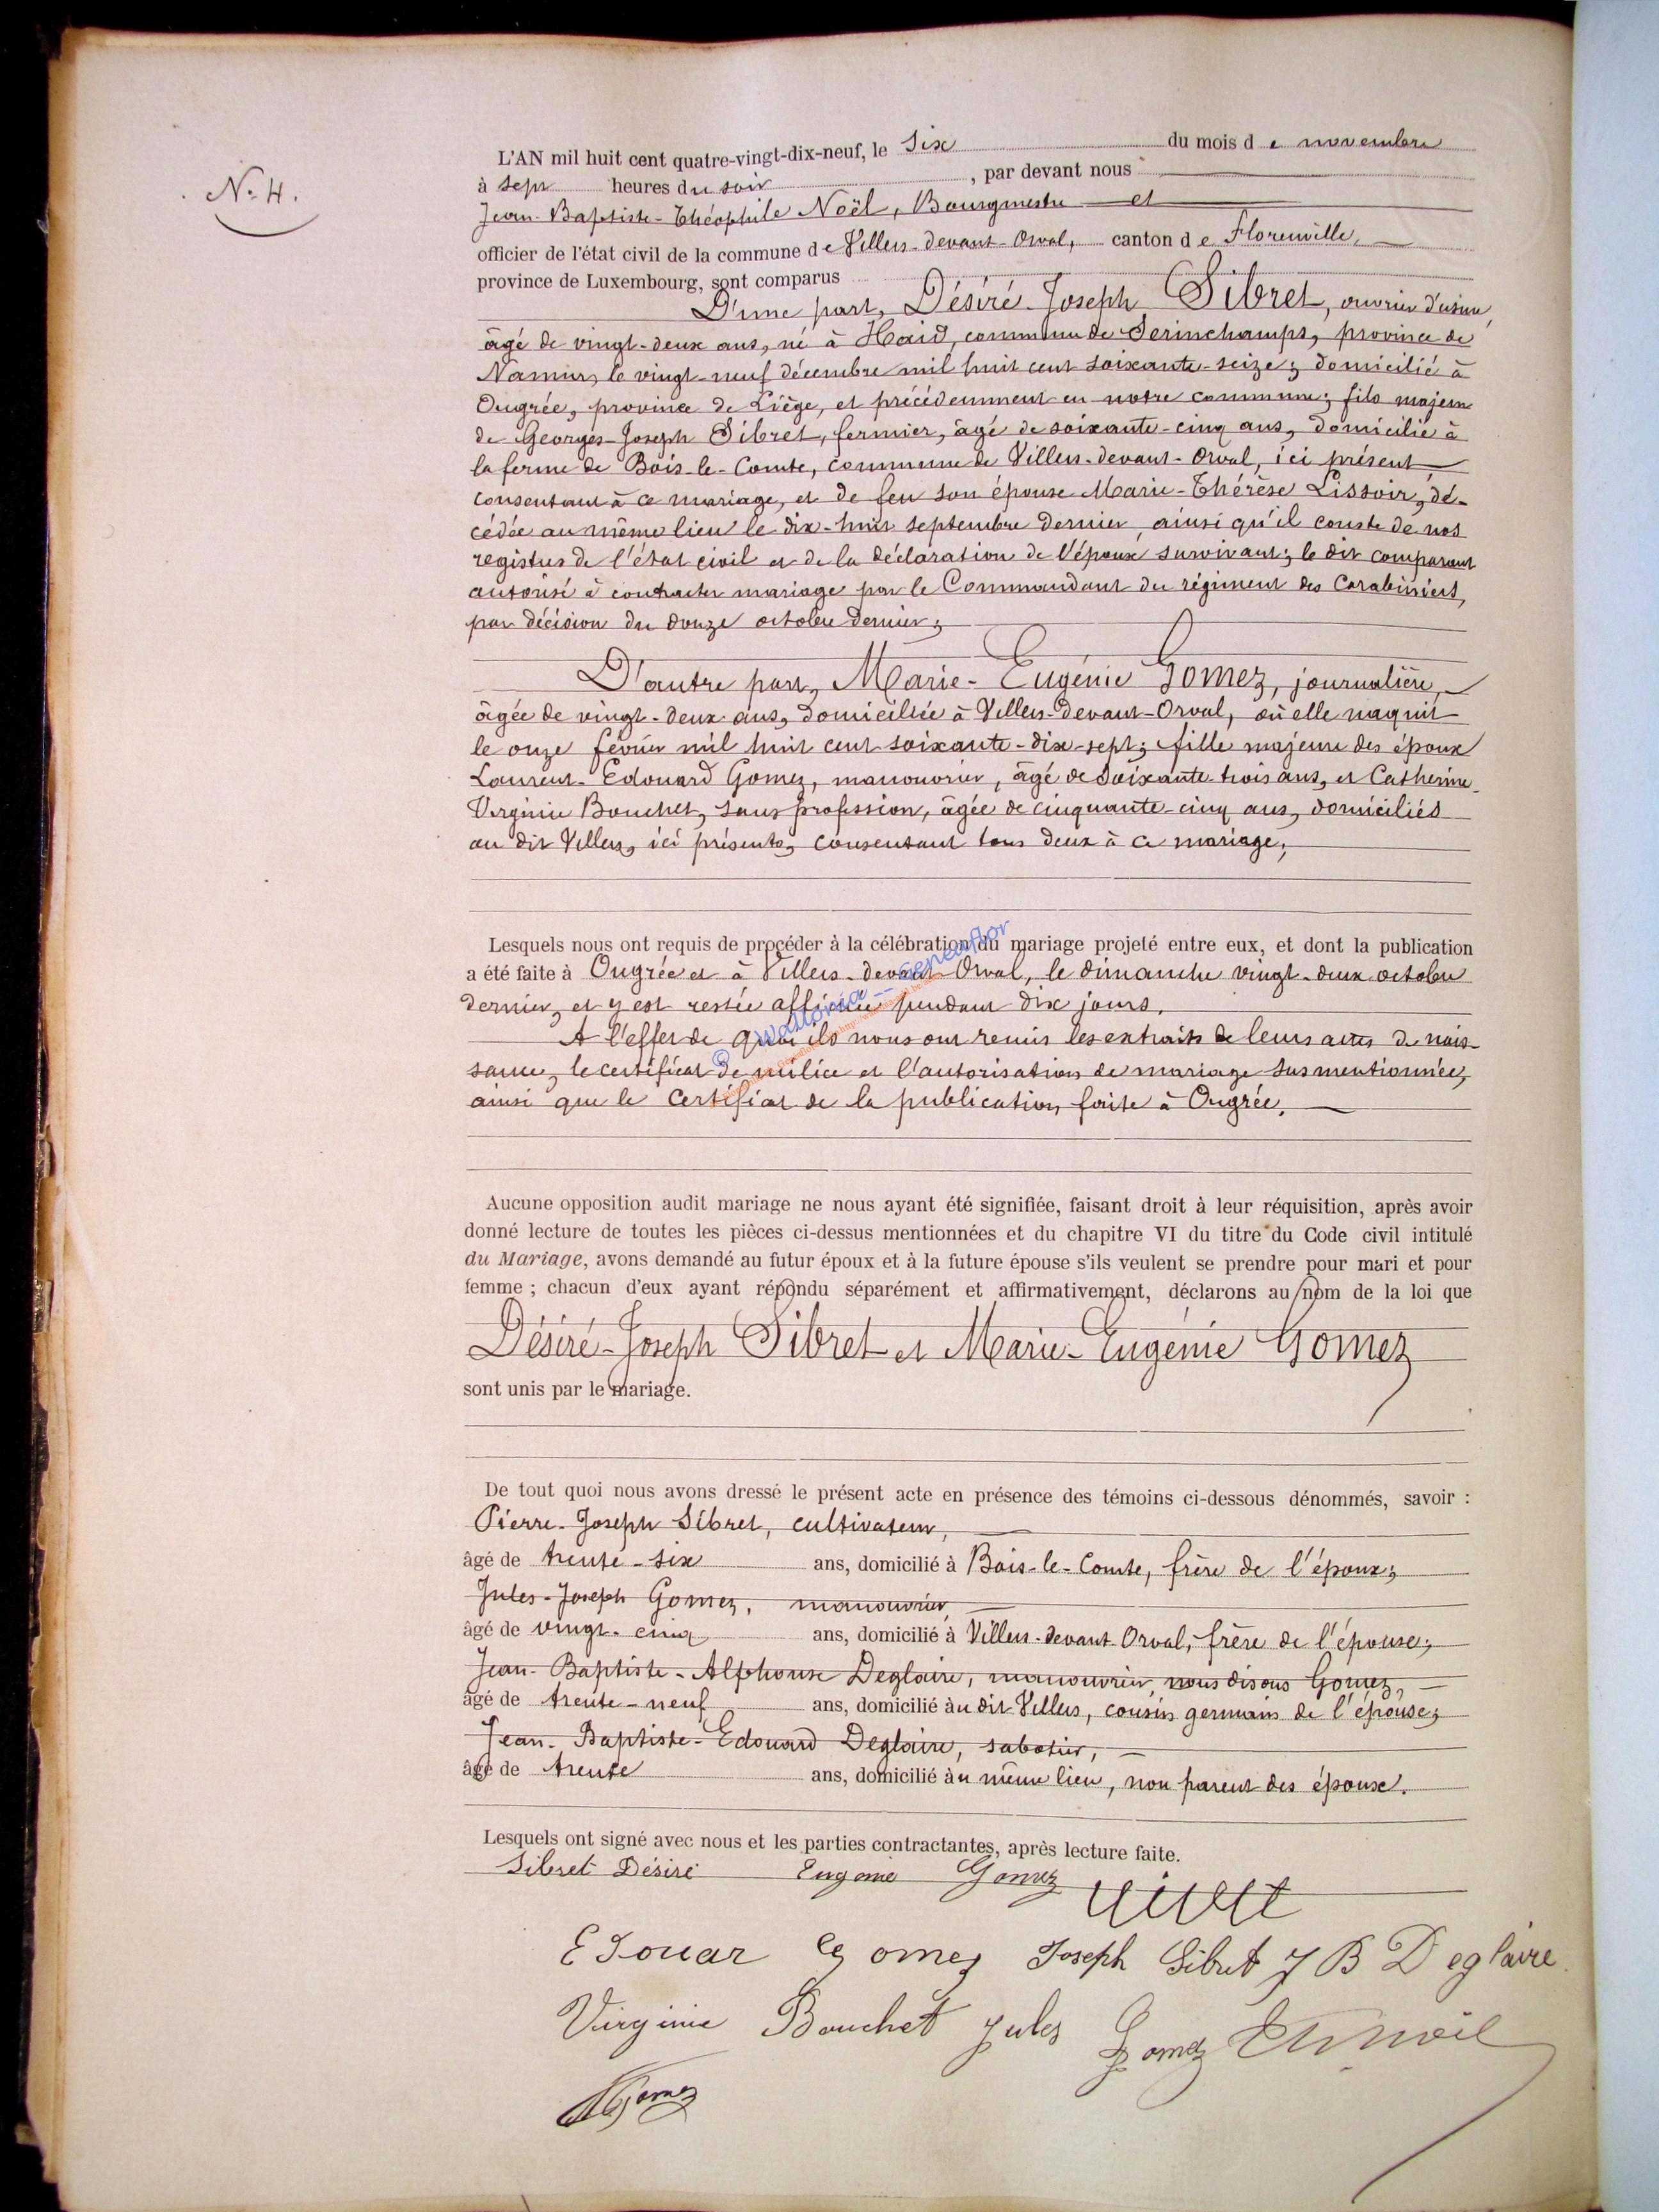 N° 4.
L'AN mil huit cent quatre-vingt-dix-neuf, le six du mois de novembre
à sept heures du soir, par devant nous
Jean-Baptiste-Théophile Noël, Bourgmestre et
officier de l'état civil de la commune de Villers-devant-Orval, canton de Florenville,
province de Luxembourg, sont comparus
D'une part, Désiré-Joseph Sibret, ouvrier d'usine,
âgé de vingt-deux ans, né à Haid, commune de Serinchamps, province de
Namur, le vingt-neuf décembre mil huit cent soixante-seize; domicilié à
Ougrée, province de Liège, et précédemment en notre commune; fils majeur
de Georges-Joseph Sibret, fermier, âgé de soixante-cinq ans, domicilié à
la ferme de Bois-le-Comte, commune de Villers-devant-Orval, ici présent
consentant à ce mariage, et de feu son épouse Marie-Thérèse Lissoir, dé-
cédée au même lieu le dix-huit septembre dernier, ainsi qu'il conste de nos
registres de l'état civil et de la déclaration de l'époux survivant; le dit comparant
autorisé à contracter mariage par le Commandant du régiment des Carabiniers,
par décision du douze octobre dernier;
D'autre part, Marie-Eugénie Gomez, journalière,
âgée de vingt-deux ans, domiciliée à Villers-devant-Orval, où elle naquit
le onze février mil huit cent soixante-dix-sept; fille majeure des époux
Laurent-Edouard Gomez, manouvrier, âgé de soixante-trois ans, et Catherine-
Virginie Bouchet, sans profession, âgée de cinquante-cinq ans, domiciliés
au dit Villers, ici présents, consentant tous deux à ce mariage;
Lesquels nous ont requis de procéder à la célébration du mariage projeté entre eux, et dont la publication
a été faite à Ougrée et à Villers-devant-Orval, le dimanche vingt-deux octobre
dernier, et y est restée affichée pendant dix jours.
A l'effet de quoi ils nous ont remis les extraits de leurs actes de nais-
sance, le certificat de milice et l'autorisation de mariage susmentionnée,
ainsi que le certificat de la publication, faite à Ougrée.
© Wallonia -- Geneaflor
Aucune opposition audit mariage ne nous ayant été signifiée, faisant droit à leur réquisition, après avoir
donné lecture de toutes les pièces ci-dessus mentionnées et du chapitre VI du titre du Code civil intitulé
du Mariage, avons demandé au futur époux et à la future épouse s'ils veulent se prendre pour mari et pour
femme ; chacun d'eux ayant répondu séparément et affirmativement, déclarons au nom de la loi que
Désiré-Joseph Sibret et Marie-Eugénie Gomez
sont unis par le mariage.
De tout quoi nous avons dressé le présent acte en présence des témoins ci-dessous dénommés, savoir :
Pierre-Joseph Sibret, cultivateur,
âgé de trente-six ans, domicilié à Bois-le-Comte, frère de l'époux;
Jules-Joseph Gomez, manouvrier,
âgé de vingt-cinq ans, domicilié à Villers-devant-Orval, frère de l'épouse;
Jean-Baptiste-Alphonse Deglaire, manouvrier, nous disons Gomez,
âgé de trente-neuf ans, domicilié au dit Villers, cousin germain de l'épouse;
Jean-Baptiste-Edouard Deglaire, sabotier,
âgé de trente ans, domicilié au même lieu, non parent des époux.
Lesquels ont signé avec nous et les parties contractantes, après lecture faite.
Sibret Désiré Eugenie Gomez
Edouar Gomez Joseph Sibret J B Deglaire
Virginie Bouchet Jules Gomez Th Noël
Gomez